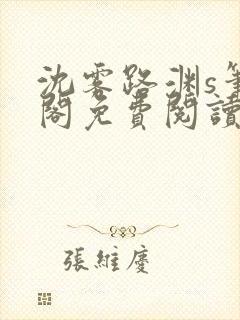 沈霧路渊s筆
閣免費閱讀
張維慶